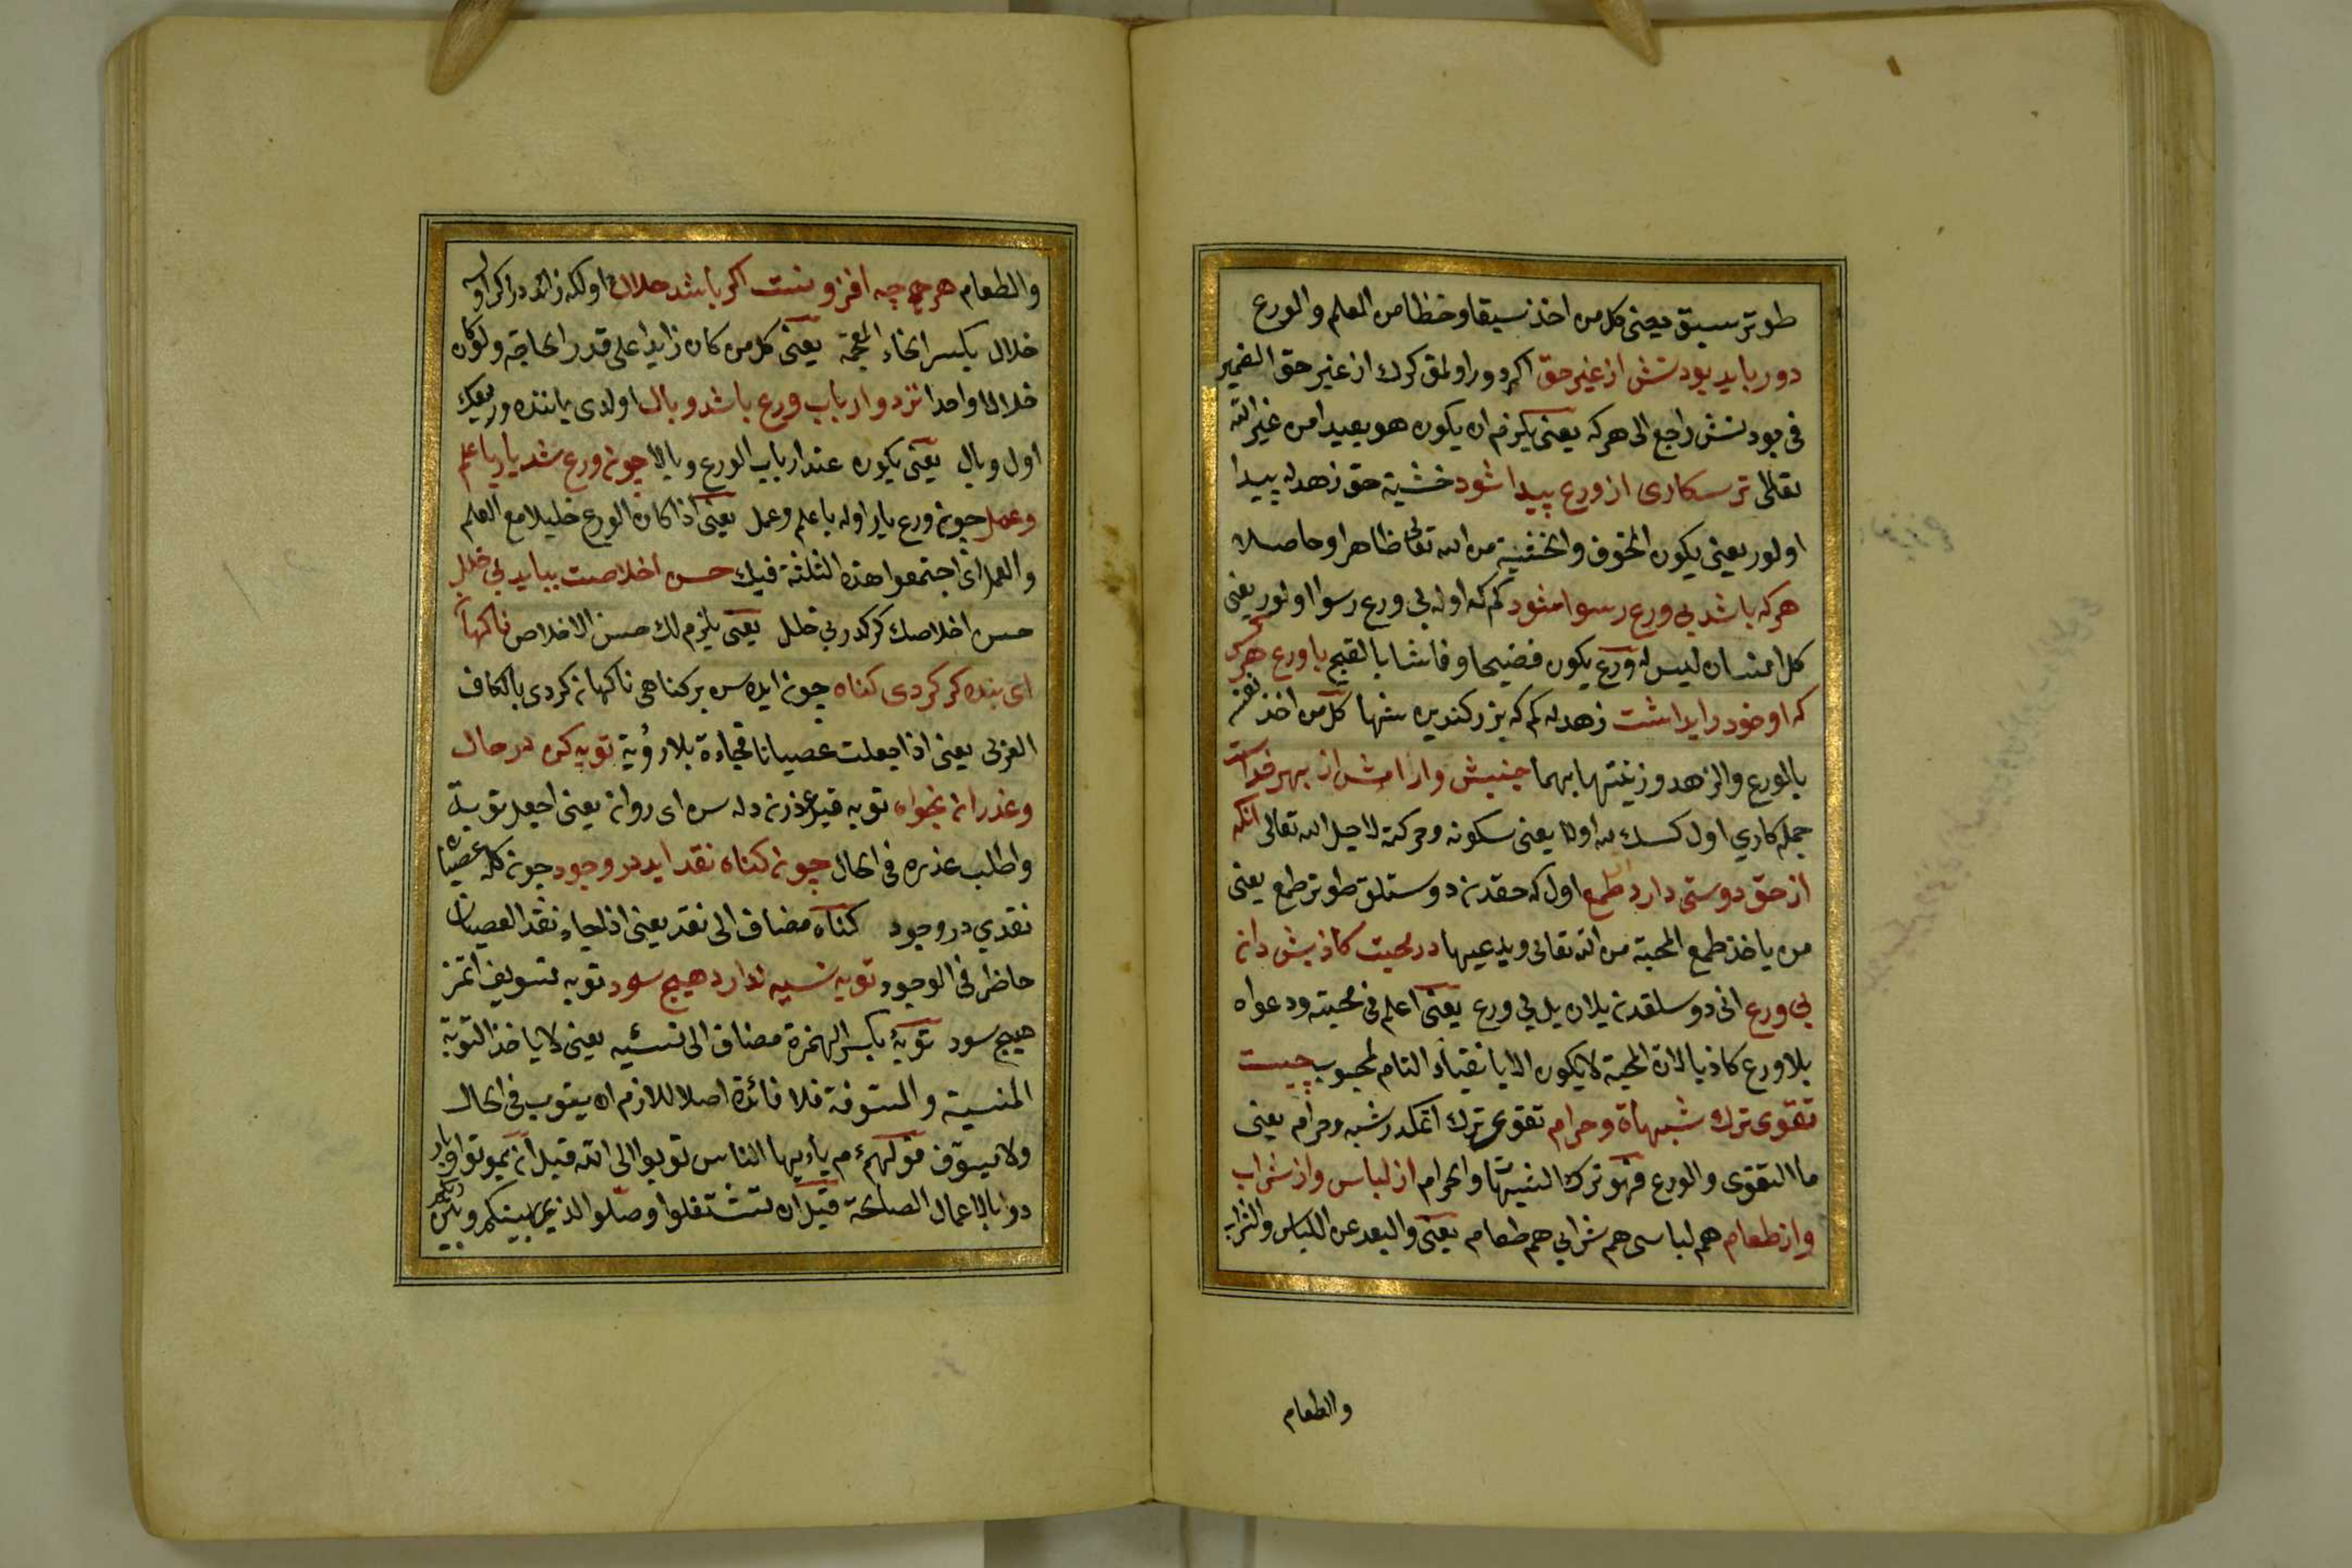 طوتر سبق يعنى كل من اخذ سبقا وحظا من العلم والورع
دور بايد بودنش از غير حق اكر دور اولمق كرك از غير حق الضمير
فى بودنش راجع الى هركه يعنى يلزم ان يكون هو بعيدا من غير الله
تعالى ترسكارى از ورع پيدا شود خشية حق زهدله پيدا
اولور يعنى يكون الخوف والخشية من الله تعالى ظاهرا وحاصلا
هركه باشد بى ورع رسوا شود كم كه اوله بى ورع رسوا اولور يعنى
كل انسان ليس له ورع يكون فضيحا وفاشا بالقبح با ورع هركس
كه او خود را بداشت زهدله كم كه بزر كنديره شها كل من اخذ نفسه
بالورع والزهد وزينتها بهما جنبش وارامش از بهر خداست
جمله كاري اول كسك لله اولا يعنى سكونه وحركته لاجل الله تعالى انكه
از حق دوستى دارد طمع اول كه حقدن دوستلق طوتر طمع يعنى
من ياخذ طمع المحبة من الله تعالى ويدعيها در محبت كاذبش دان
بى ورع انى دوسلقدن يلان بل بى ورع يعنى اعلم فى محبته ودعواه
بلا ورع كاذبا لان المحبة لا يكون الا بانقياد التام لمحبوب چيست
تقوى ترك شبهاة وحرام تقوى ترك اتمكدر شبه وحرام يعنى
ما التقوى والورع فهو ترك الشبهة والحرام از لباس واز شراب
واز طعام هم لباسى هم شرابى هم طعام يعنى والبعد عن اللباس والشراب
والطعام
والطعام هر چه افزونست اكر باشد حلال اولكه زائددر اكر اوله
خلال بكسر الخاء المعجمة يعنى كل من كان زايدا على قدر الحاجة ولو كان
خلالا واحدا نزد ارباب ورع باشد وبال اولدى ياننده ورعك
اول وبال يعنى يكون عند ارباب الورع وبالا چون ورع شد يار با علم
وعمل چون ورع يار اوله با علم وعمل يعنى اذا كان الورع خليلا مع العلم
والعمل اى اجتمعوا هذه الثلثة فيك حسن اخلاصت ببايد بى خلل
حسن اخلاصك كركدر بى خلل يعنى يلزم لك حسن الاخلاص ناكهان
اى بنده كر كردى كناه چون ايده سن بر كناهى ناكهان كردى بالكاف
العربى يعنى اذا جعلت عصيانا فجاءة بلا رؤية توبه كن در حال
وعذر ان بخواه توبه قيل عذرن دله سن اى روان يعنى اجعل توبة
واطلب عذره فى الحال چون كناه نقد ايد در وجود چون كله عصيان
نقدي در وجود كناه مضاف الى نقد يعنى اذا جاء نقد العصيان
حاظر فى الوجود توبه نسيه ندارد هيچ سود توبه تسويف اتمز
هيچ سود توبهٔ بكسر الهمزة مضاف الى نسئيه يعنى لا ياخذ التوبة
المنسية والمسوفة فلا فائدة اصلا للازم ان يتوب فى الحال
ولا يسوف قولهم يا ايها الناس توبوا الى الله قبل ان يموتوا وبا
دوا بالاعمال الصلحة قبل ان تشتغلوا وصلوا الذي بينكم وبين